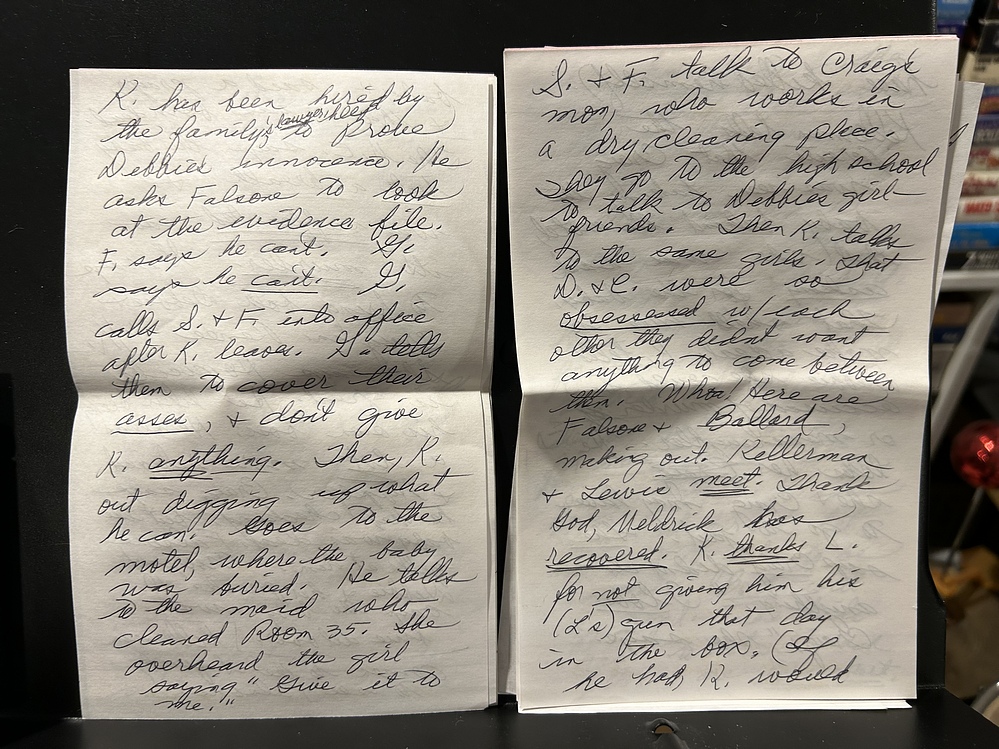 K. has been hired by
the family's lawyer to prove
Debbie's innocence. He
asks Falsone to look
at the evidence file.
F. says he can't. G.
says he can't. G.
calls S. + F. into office
after K. leaves. G. tells
them to cover their
asses, + don't give
K. anything. Then, K.
out digging up what
he can. Goes to the
motel, where the baby
was buried. He talks
to the maid who
cleaned Room 35. She
overheard the girl
saying "Give it to
me."
S. + F. talk to Craig's
mom, who works in
a dry cleaning place.
They go to the high school
to talk to Debbie's girl
friends. Then K. talks
to the same girls. That
D. + C. were so
obsessessed w/each
other they didn't want
anything to come between
them. Whoa! Here are
Falsone + Ballard,
making out. Kellerman
+ Lewis meet. Thank
God, Meldrick has
recovered. K. thanks L.
for not giving him his
(L's) gun that day
in the box. (If
he had, K. would